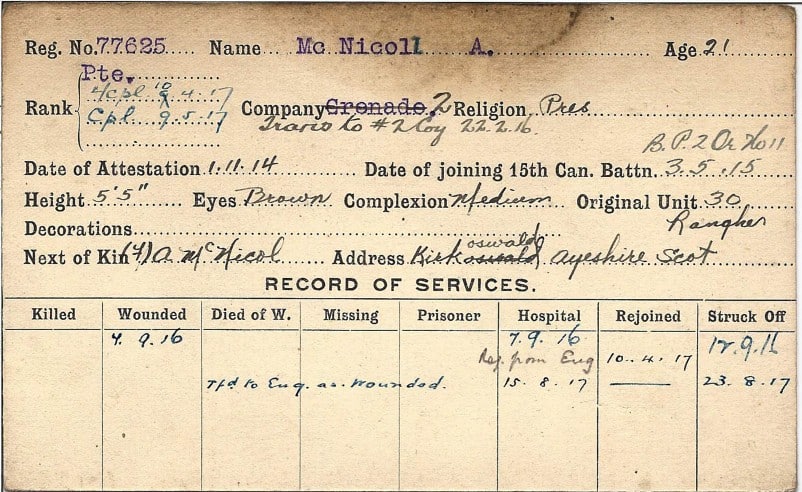 Reg. No. 77625 Name Mc Nicoll A. Age 21
Pte.
Rank L/Cpl 10.4.17
Cpl 9.5.17
Company Grenade. 2 Religion Pres
Trans to #2 Coy 22.2.16.
B.P.2 Or No 11
Date of Attestation 1.11.14 Date of joining 15th Can. Battn. 3.5.15
Height 5'5" Eyes Brown Complexion Medium Original Unit 30
Decorations
Next of Kin (f) A McNicol Address Kirkoswald Ayeshire Scot
RECORD OF SERVICES.
Killed Wounded Died of W. Missing Prisoner Hospital Rejoined Struck Off
7.9.16 7.9.16 12.9.16
Rej. from Eng 10.4.17
Tfd to Eng. as. Wounded. 15.8.17 23.8.17